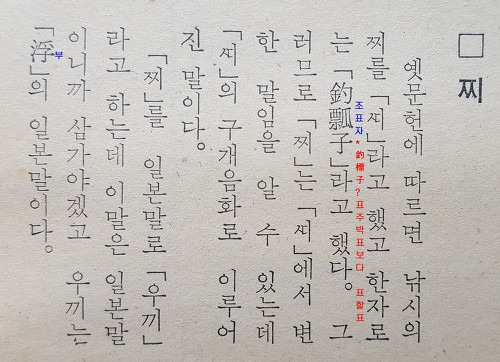 □ 찌
옛문헌에 따르면 낚시의
찌를 「ᄯᅵ」라고 했고 한자로
는 「釣瓢子」라고 했다. 그
조표자* 釣標子?표주박표보다 표할표
러므로 「찌」는 「ᄯᅵ」에서 변
한 말임을 알 수 있는데
「ᄯᅵ」의 구개음화로 이루어
진 말이다.
「찌」를 일본말로 「우끼」
라고 하는데 이말은 일본말
이니까 삼가야겠고 우끼는
부
「浮」의 일본말이다.